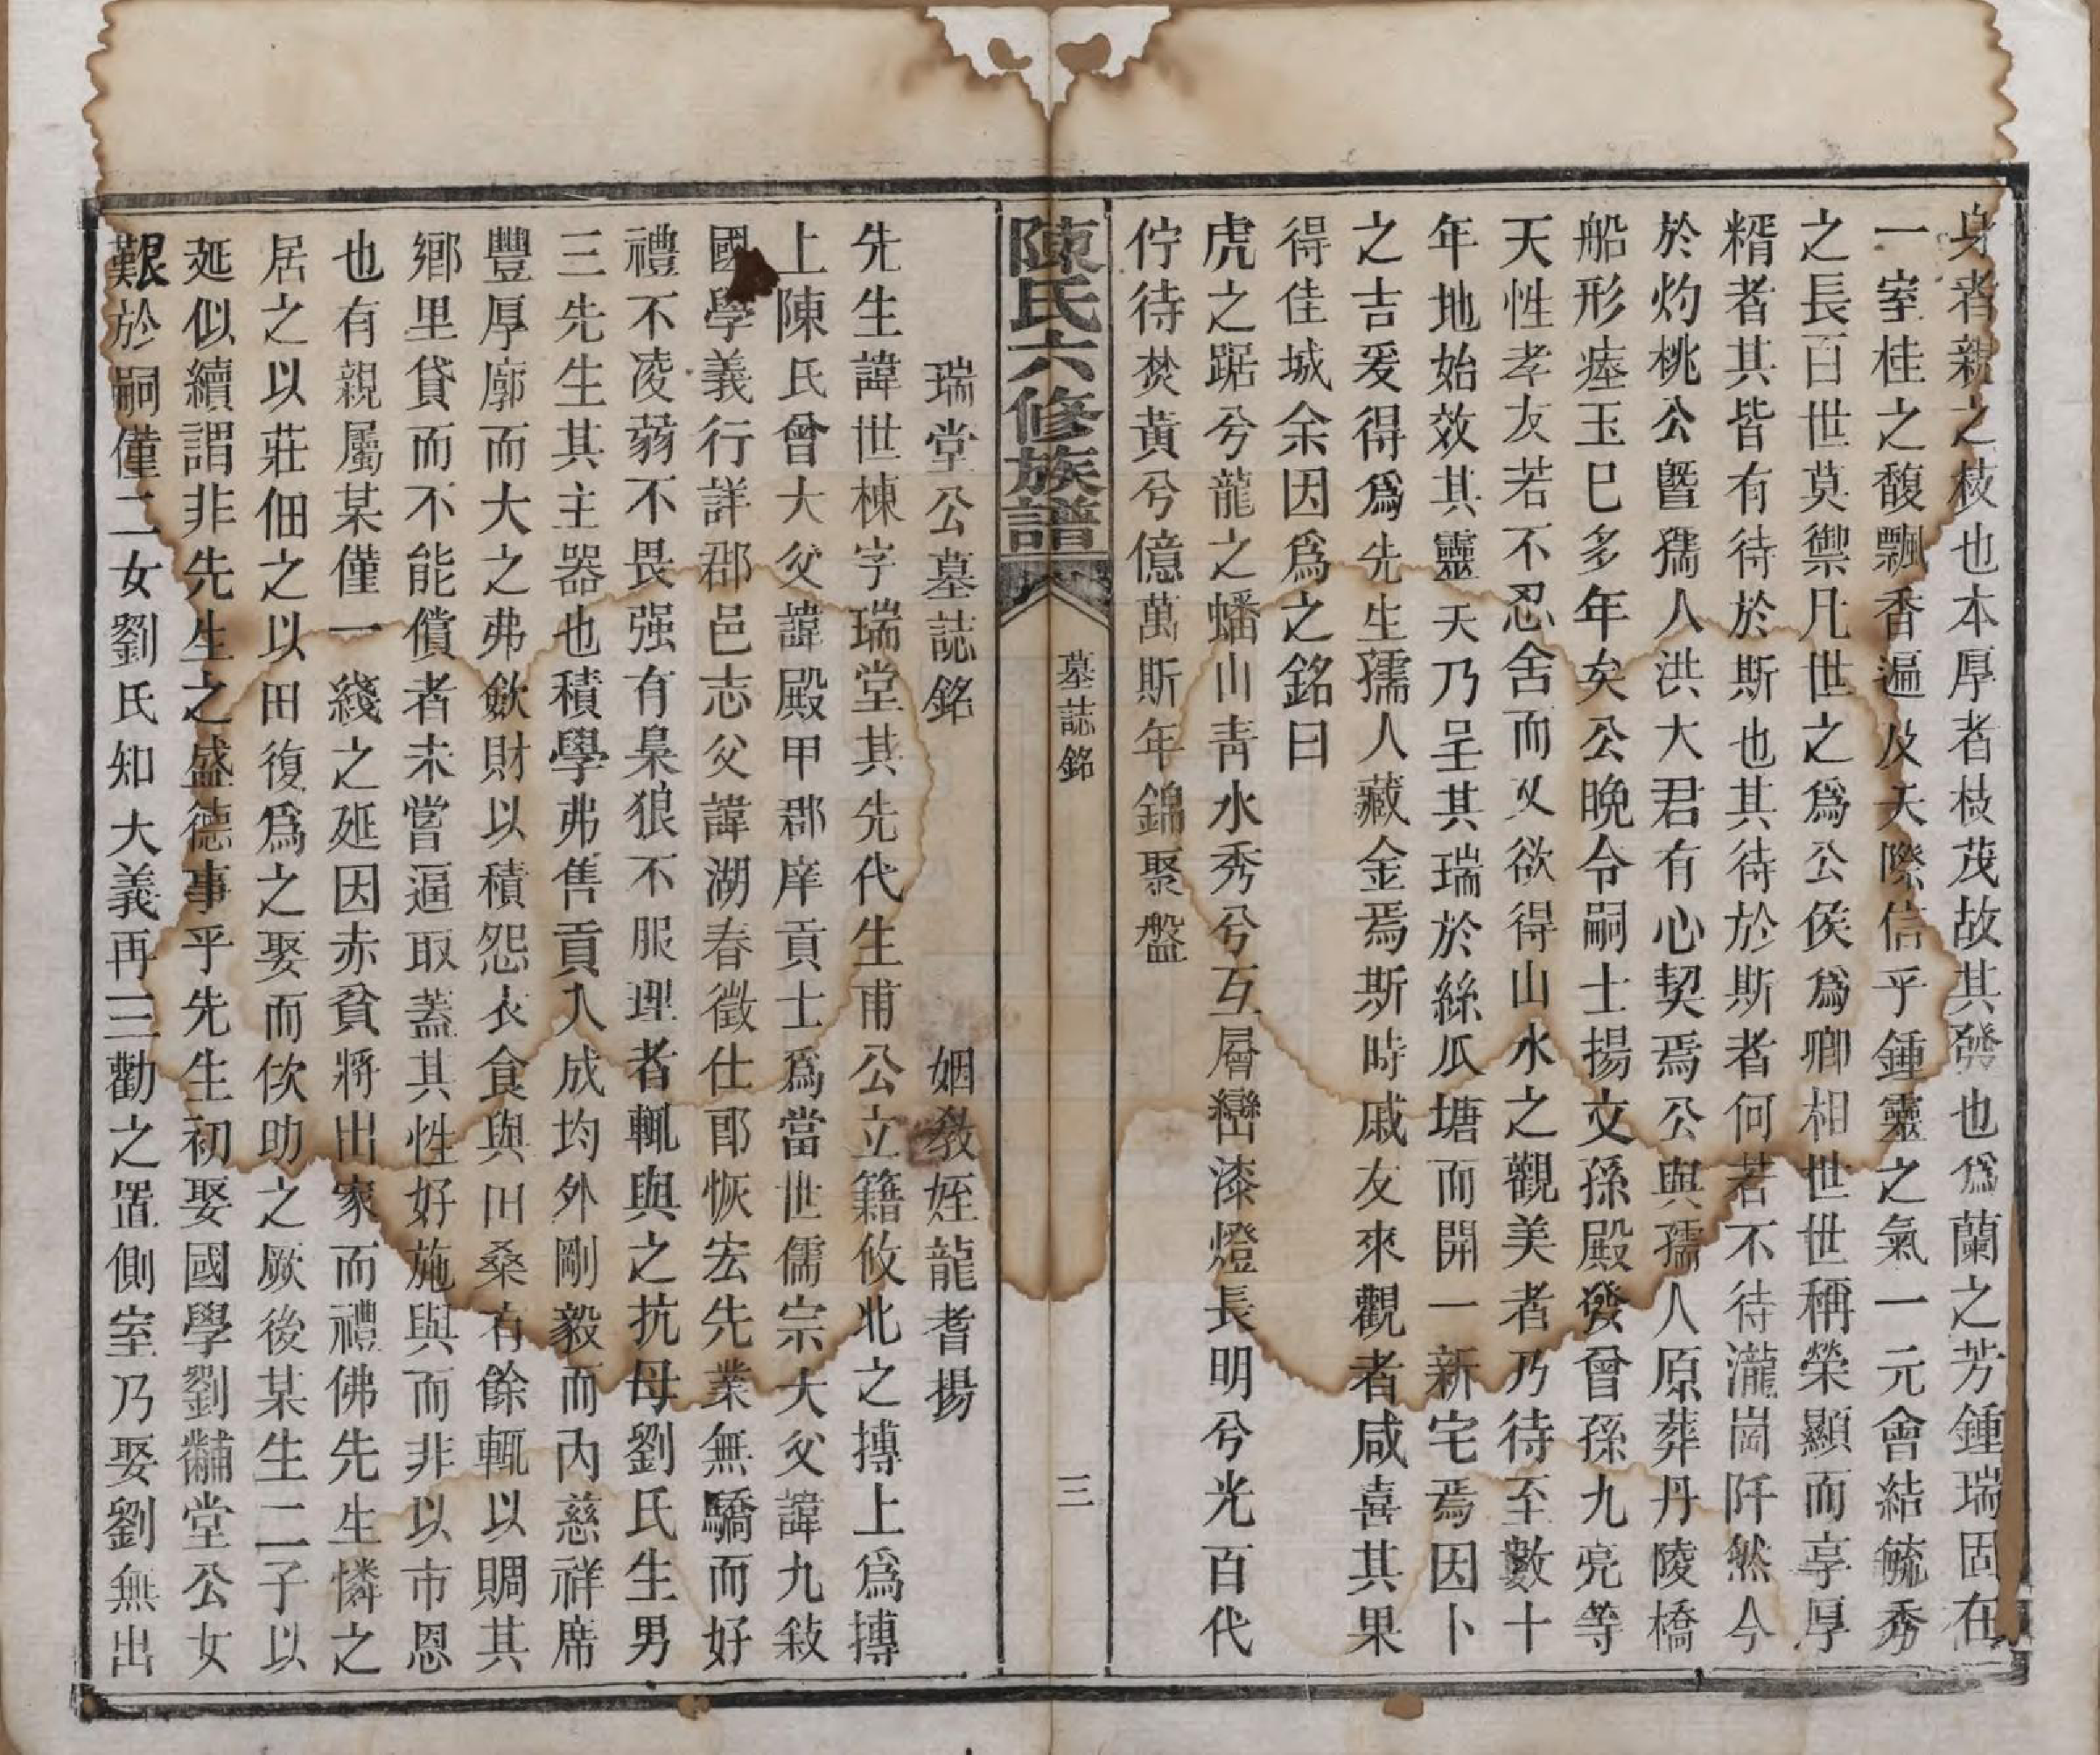 身者親之枝也本厚者枝茂故其發也爲蘭之芳鍾瑞固在
一室桂之馥飄香遍及天際信乎鍾靈之氣一元會結毓秀
之長百世莫禦凡世之爲公侯爲卿相世世稱榮顯而享厚
糈者其皆有待於斯也其待於斯者何若不待瀧崗阡然今
於灼桃公暨孺人洪大君有心契焉公與孺人原葬丹陵橋
船形瘞玉巳多年矣公晚令嗣士揚文孫殿發曾孫九亮等
天性孝友若不忍舍而又欲得山水之觀美者乃待至數十
年地始效其靈天乃呈其瑞於絲瓜塘而開一新宅焉因卜
之吉爰得爲先生孺人藏金焉斯時戚友來觀者咸喜其果
得佳城余因爲之銘曰
虎之踞兮龍之蟠山青水秀兮互層巒漆燈長明兮光百代
佇待焚黃兮億萬斯年錦聚盤
陳氏六修族譜
墓誌銘
三
瑞堂公墓誌銘
姻教姪龍耆揚
先生諱世棟字瑞堂其先代生甫公立籍攸北之摶上爲摶
上陳氏曾大父諱殿甲郡庠貢士爲當世儒宗大父諱九敍
國學義行詳郡邑志父諱湖春徵仕郎恢宏先業無驕而好
禮不凌弱不畏强有臬狼不服理者輒與之抗母劉氏生男
三先生其主器也積學弗售貢入成均外剛毅而內慈祥席
豐厚廓而大之弗斂財以積怨衣食與田桑有餘輒以賙其
鄉里貸而不能償者未嘗逼取蓋其性好施與而非以市恩
也有親屬某僅一綫之延因赤貧將出家而禮佛先生憐之
居之以莊佃之以田復爲之娶而佽助之厥後某生二子以
延似續謂非先生之盛德事乎先生初娶國學劉黼堂公女
艱於嗣僅二女劉氏知大義再三勸之置側室乃娶劉無出